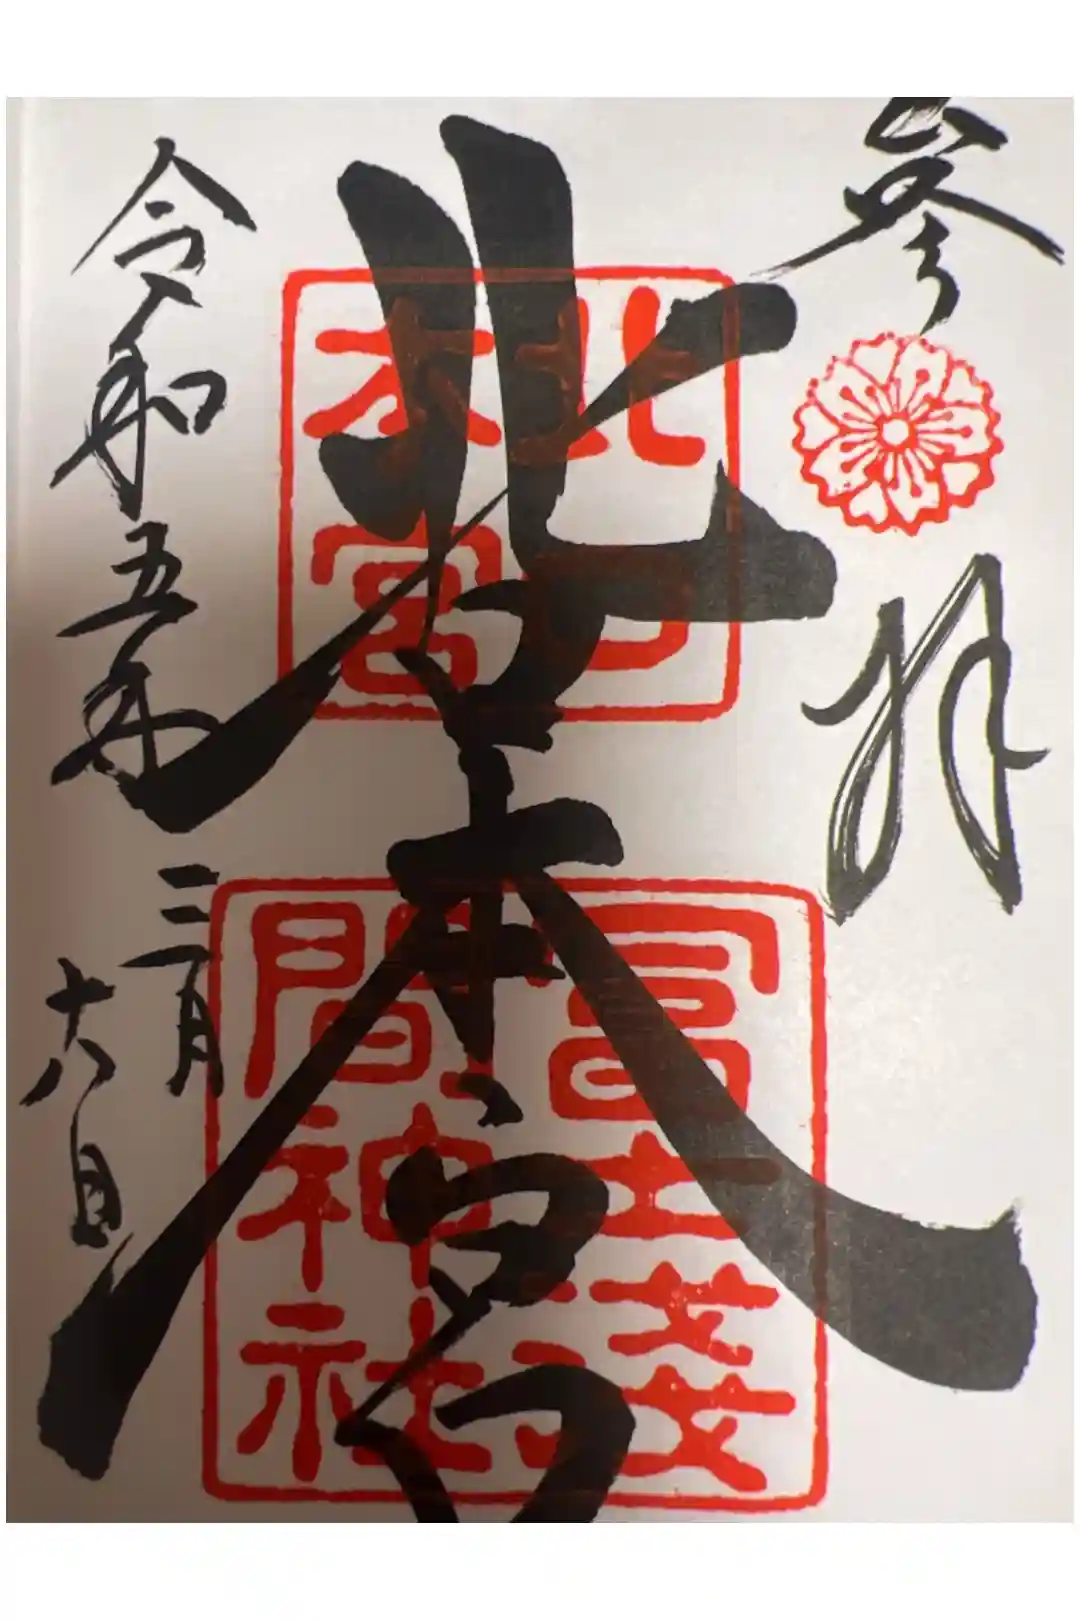 参拝
北口本宮
北口
本宮
冨士淺
間神社
令和五年
三月
六日